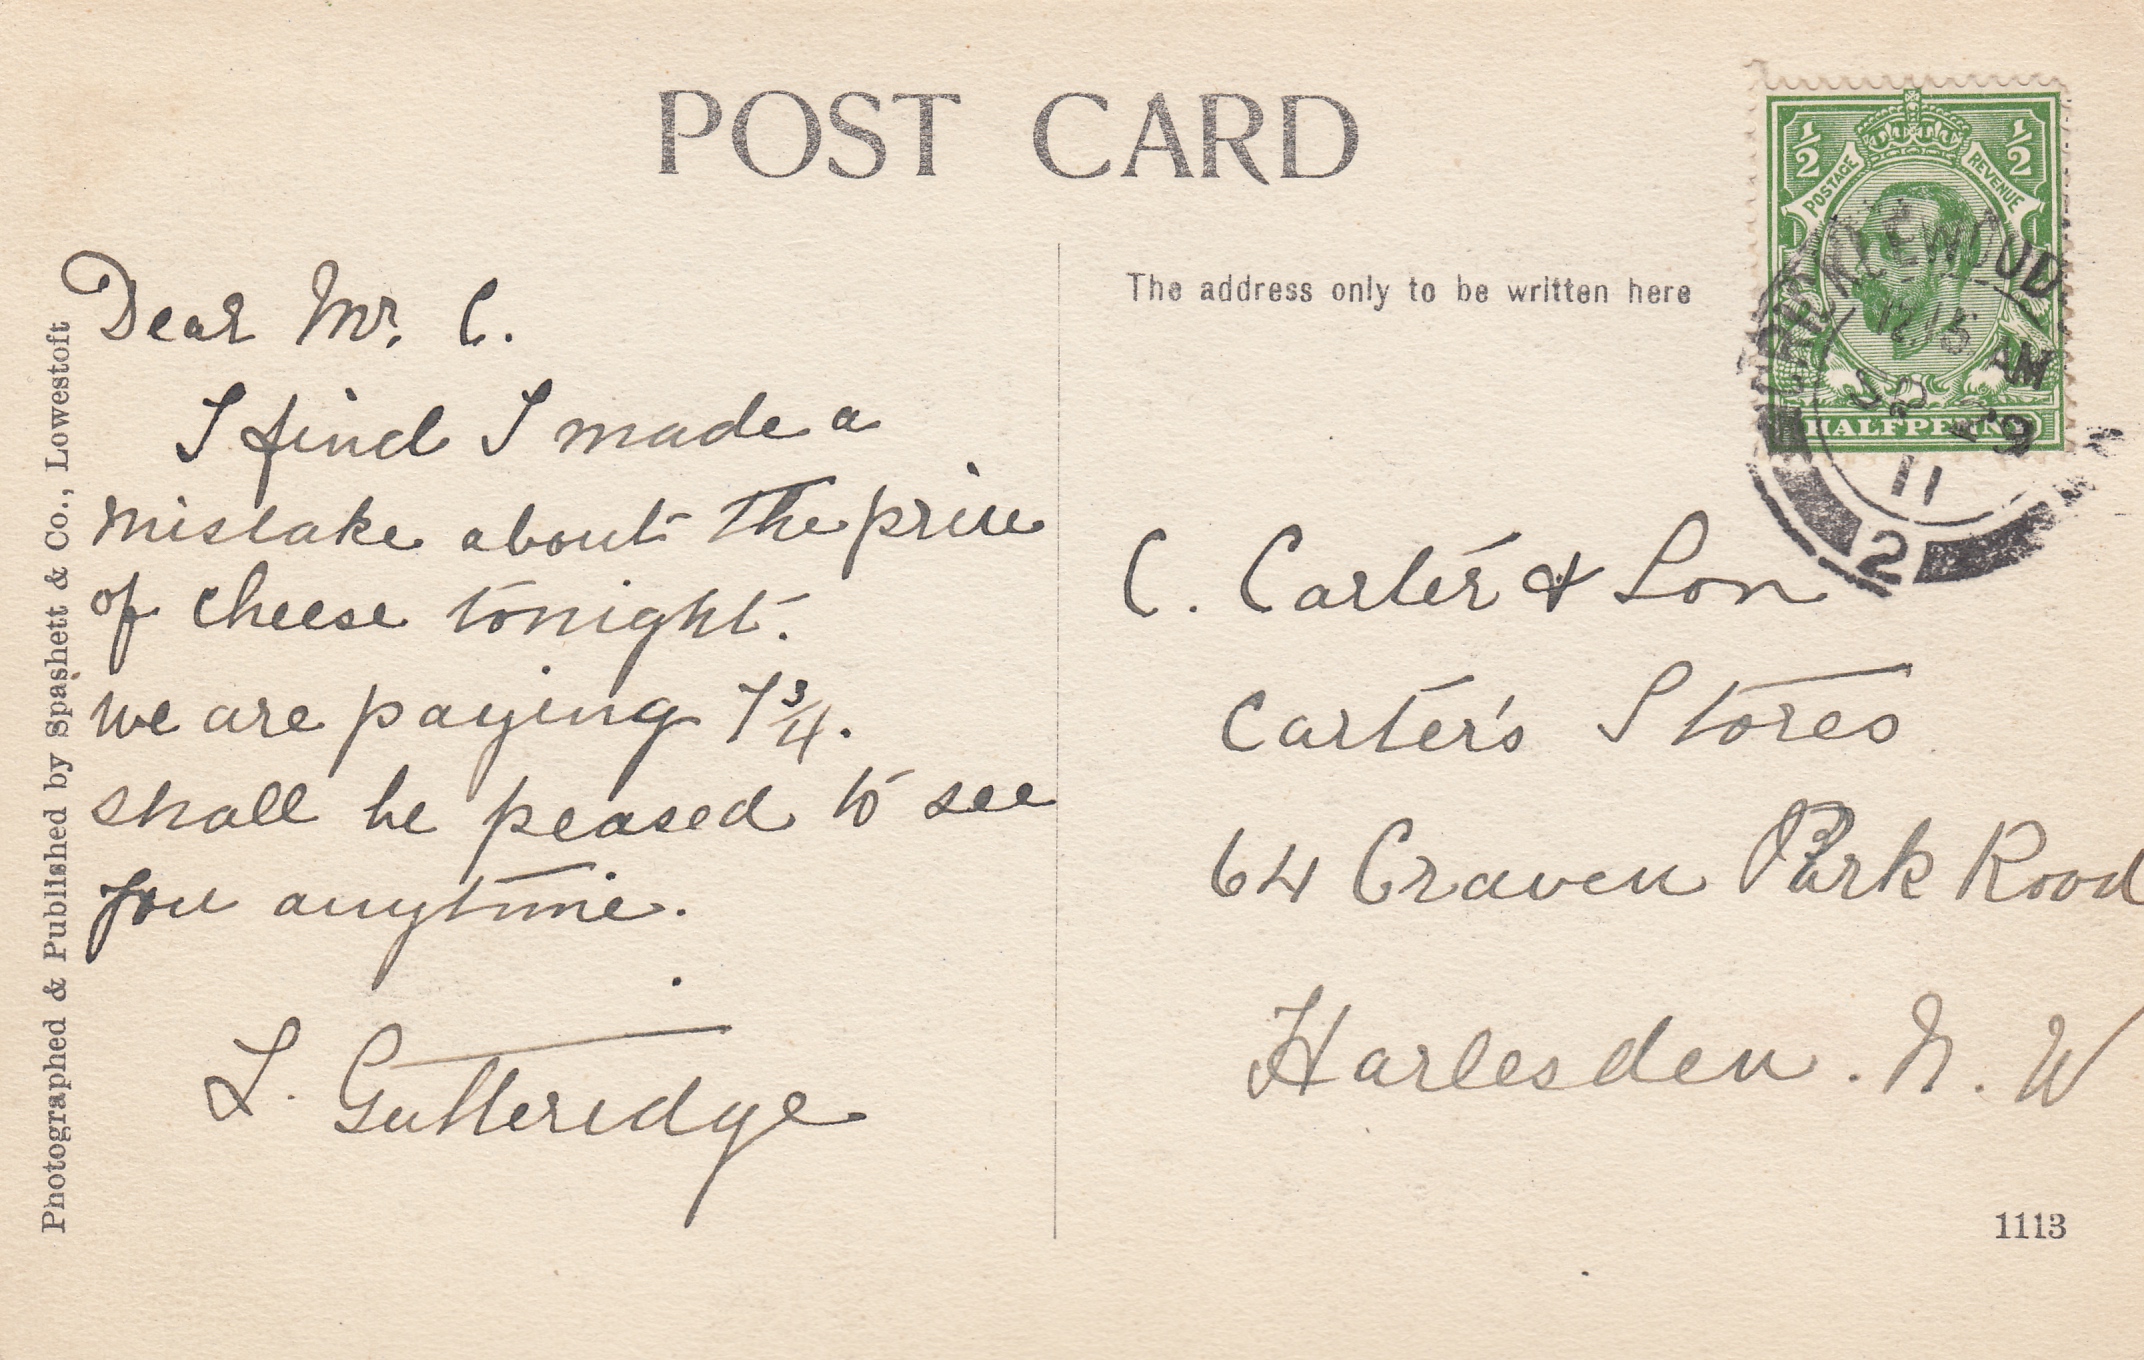 POST CARD
½ ½
POSTAGE REVENUE
HALFPENNY
CRICKLEWOOD
12.15 AM
SP 29
11
2
The address only to be written here
Dear Mr. C.
I find I made a
mistake about the price
of cheese tonight.
we are paying 7¾.
shall be peased to see
you anytime.
L. Gutteridge
C. Carter & Son
Carter's Stores
64 Craven Park Road
Harlesden. N. W
1113
Photographed & Published by Spashett & Co., Lowestoft